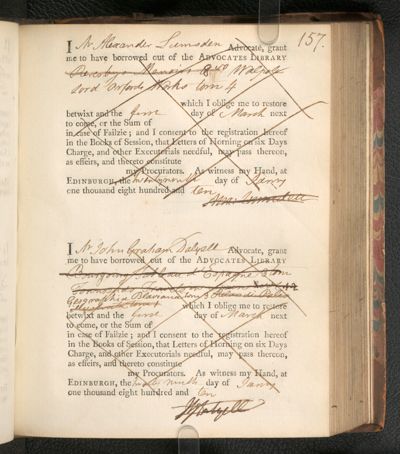 157.
I Mr Alexander Lumsden Advocate, grant
me to have borrowed out of the ADVOCATES LIBRARY
Memoirs 8vo Walpole
Lord Orfords Works tom 4
which I oblige me to restore
betwixt and the first day of March next
to come, or the Sum of
in case of Failzie; and I consent to the registration hereof
in the Books of Session, that Letters of Horning on six Days
Charge, and other Executorials needful, may pass thereon,
as effeirs, and thereto constitute
my Procurators. As witness my Hand, at
EDINBURGH, the twenty ninth day of Janry
one thousand eight hundred and ten
Lumsden
I Mr John Graham Dalyell Advocate, grant
me to have borrowed out of the ADVOCATES LIBRARY
Tableau Espagne
Geographia Blaviana tom
which I oblige me to restore
betwixt and the first day of March next
to come, or the Sum of
in case of Failzie; and I consent to the registration hereof
in the Books of Session, that Letters of Horning on six Days
Charge, and other Executorials needful, may pass thereon,
as effeirs, and thereto constitute
my Procurators. As witness my Hand, at
EDINBURGH, the twenty ninth day of Janry
one thousand eight hundred and ten
JGDalyell